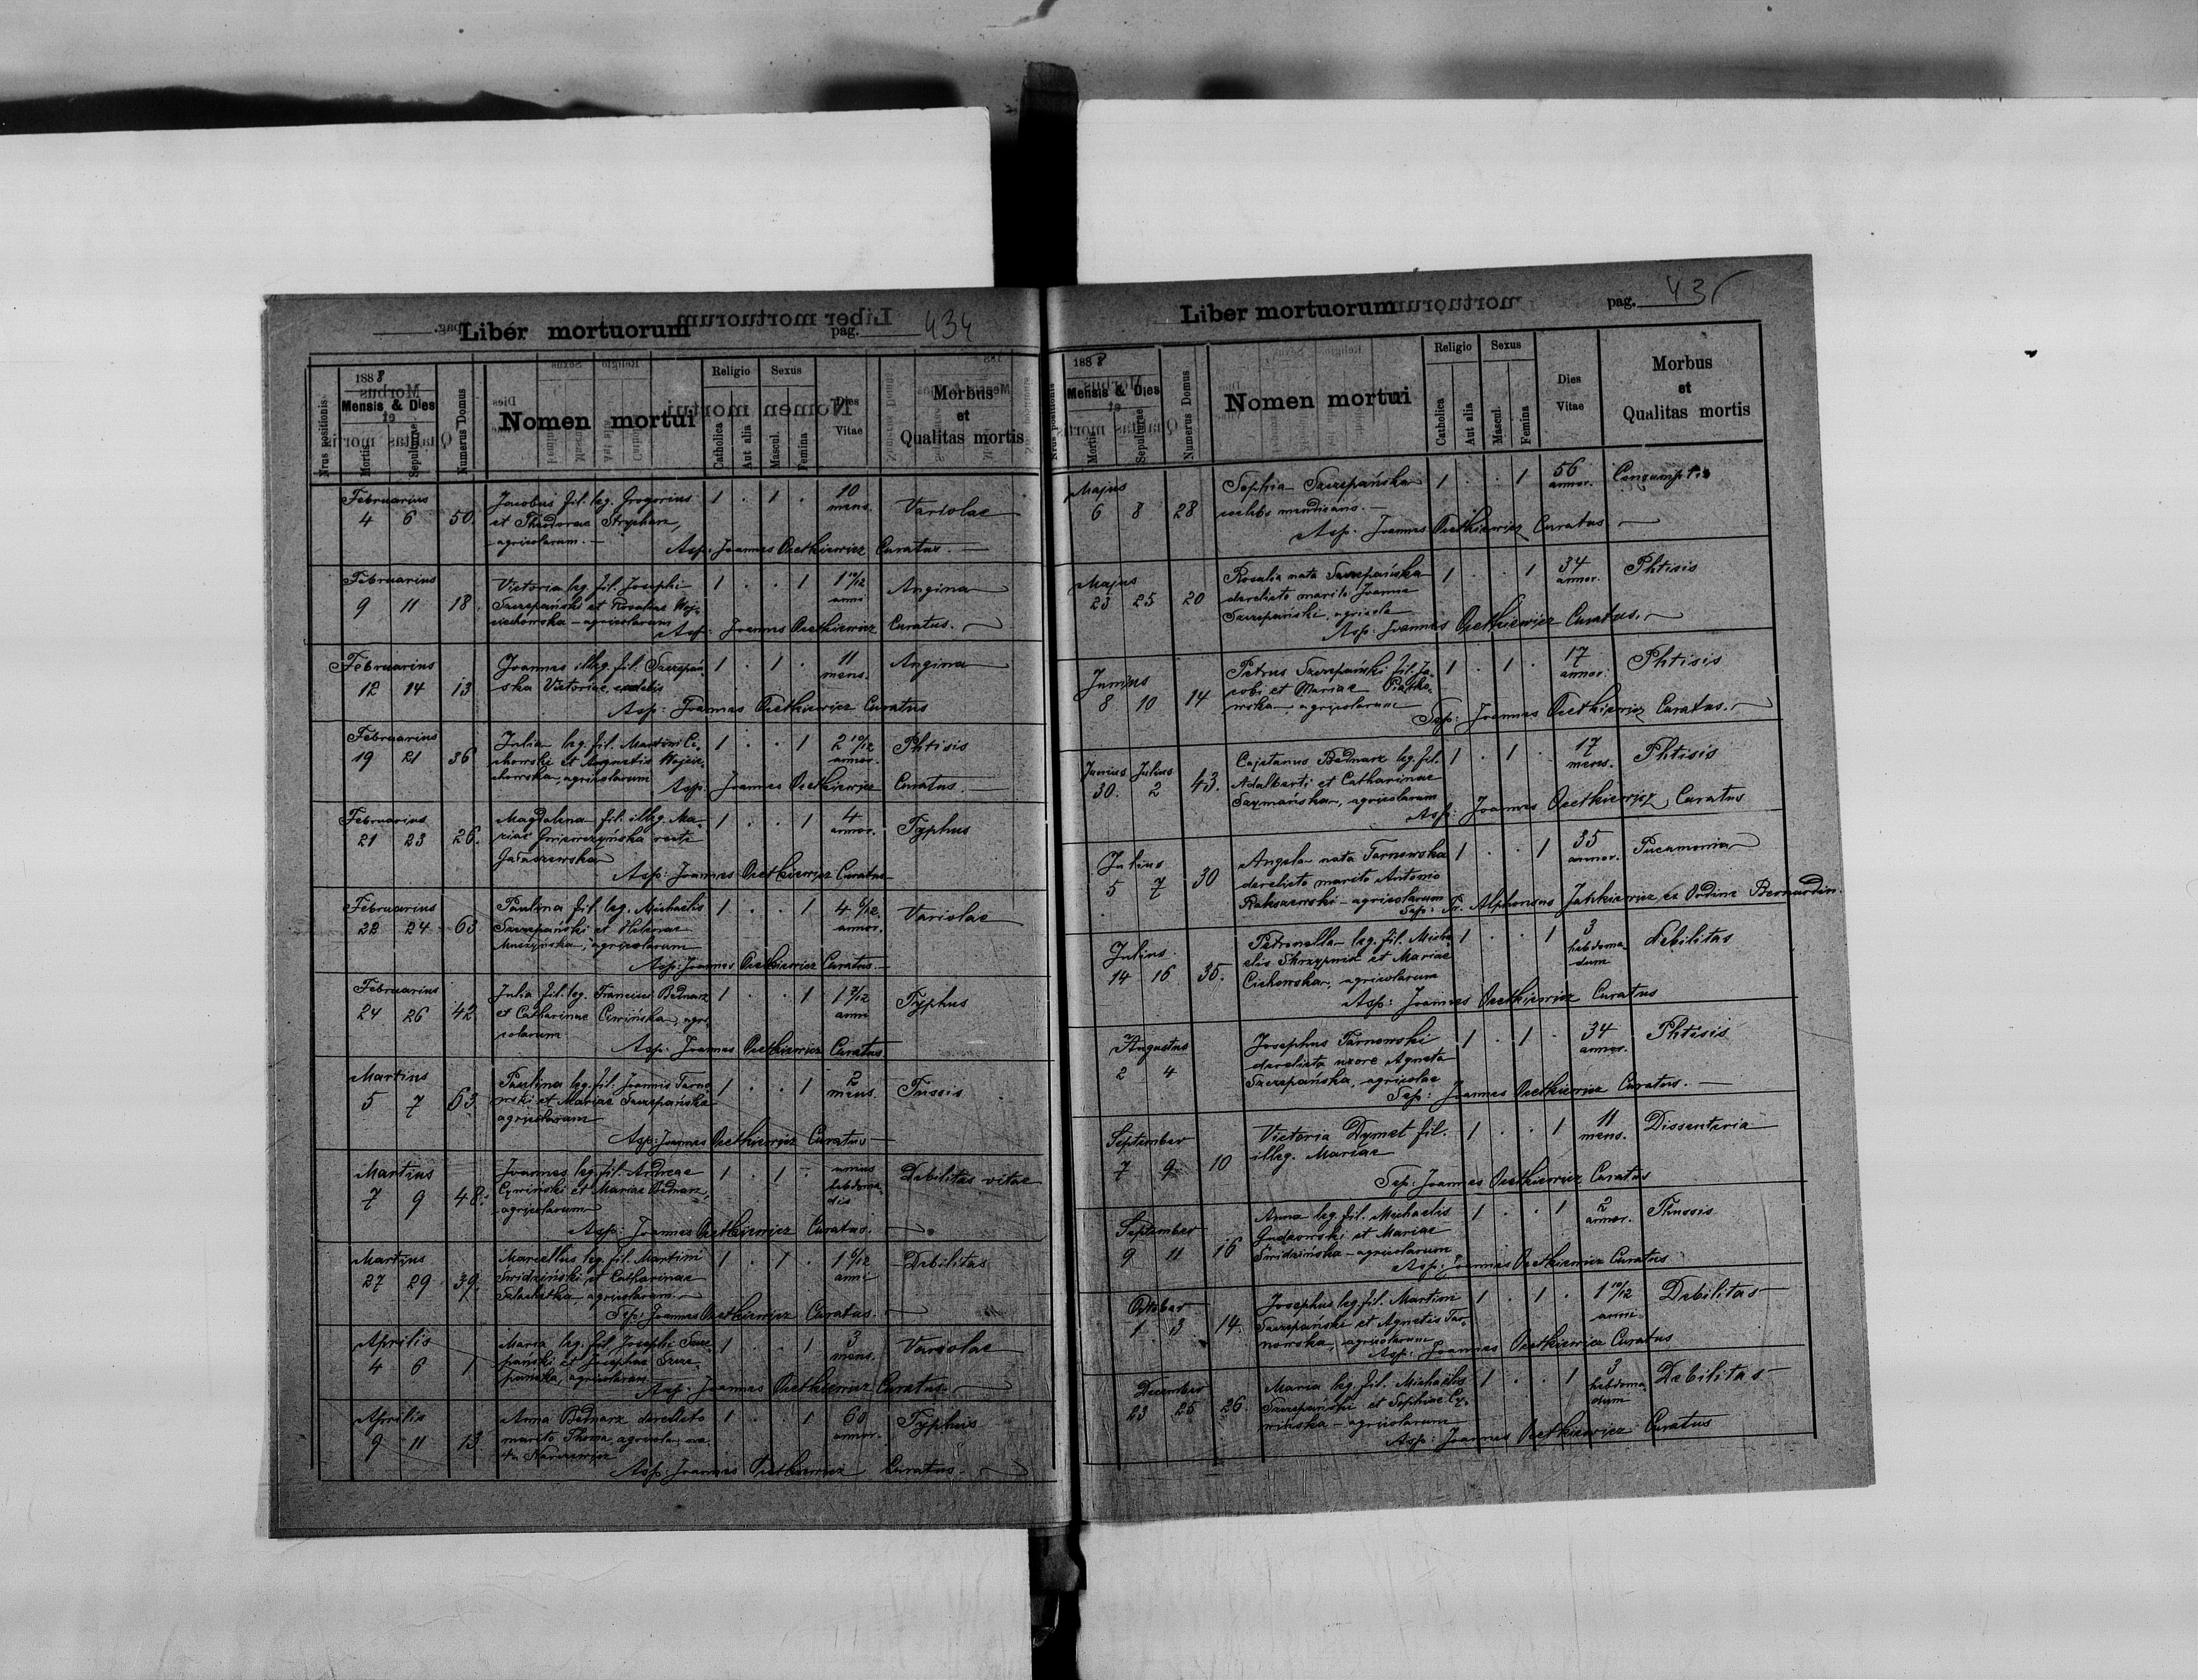 Liber mortuorum pag. 434
Nrus positionis
1888
Mensis & Dies
Mortis
Sepulturae
Numerus Domus
Nomen mortui
Religio
Catholica
Aut alia
Sexus
Mascul.
Femina
Dies Vitae
Morbus
et
Qualitas mortis
Februarius 4 6 50. Jacobus fil. leg. Gregorius 1 . 1 . 10 mens. Variolae
et Theodorae Strychar,
agricolarum. —
Asp: Joannes Oretkiewicz Curatus. —
Februarius 9 11 18. Victoria leg. fil. Josephi 1 . . 1 1 10/12 anni Angina
Szczepański et Rosaliae Woj-
ciechowska - agricolarum
Asp: Joannes Oretkiewicz Curatus.
Februarius 12 14 13 Joannes illeg. fil. Szczepań- 1 . 1 . 11 mens. Angina
ska Victoriae
Asp: Joannes Oretkiewicz Curatus
Februarius 19 21 36 Julia leg. fil. Martini Ci- 1 . . 1 2 10/12 annor. Phtisis
chowski et Agnetis Wojcie-
chowska, agricolarum
Asp. Joannes Oretkiewicz Curatus. —
Februarius 21 23 26. Magdalena fil. illeg. Ma- 1 . . 1 4 annor. Typhus
riae Gniewczyńska recte
Gałaszewska
Asp: Joannes Oretkiewicz Curatus
Februarius 22 24 63 Paulina fil. leg. Michaelis 1 . . 1 4 6/12 annor. Variolae
Szczepański et Helenae
Muszyńska, agricolarum
Asp: Joannes Oretkiewicz Curatus. —
Februarius 24 26 42 Julia fil. leg. Francisci Bednarz 1 . . 1 1 3/12 anni Typhus
et Catharinae Cewińska, agri-
colarum
Asp: Joannes Oretkiewicz Curatus
Martius 5 7 63 Paulina leg. fil. Joannis Tarno- 1 . . 1 2 mens. Tussis
wski et Mariae Szczepańska
agricolarum
Asp: Joannes Oretkiewicz Curatus —
Martius 7 9 48. Joannes leg. fil. Andreae 1 . 1 . unius hebdoma- dis Debilitas vitae
Cywiński et Mariae Bednarz,
agricolarum
Asp: Joannes Oretkiewicz Curatus.
Martius 27 29 39. Marcellus leg. fil. Martini 1 . 1 . 1 6/12 anni Debilitas
Świdziński et Catharinae
Szlachetka, agricolarum. —
Sep: Joannes Oretkiewicz Curatus.
Aprilis 4 6 1 Maria leg. fil. Josephi Szcze- 1 . . 1 3 mens. Variolae
pański et Josephae Szcze-
pańska, agricolarum
Asp: Joannes Oretkiewicz Curatus.
Aprilis 9 11 13 Anna Bednarz derelicto 1 . . 1 60 annor. Typhus
marito Thoma, agricola, na-
ta
Asp: Joannes Oretkiewicz Curatus.
Liber mortuorum pag. 435
Nrus positionis
1888
Mensis & Dies
Mortis
Sepulturae
Numerus Domus
Nomen mortui
Religio
Catholica
Aut alia
Sexus
Mascul.
Femina
Dies Vitae
Morbus
et
Qualitas mortis
Majus 6 8 28 Sophia Szczepańska 1 . . 1 56 annor. Consumptio
coelebs mendicans. —
Asp. Joannes Oretkiewicz Curatus —
Majus 23 25 20 Rosalia nata Szczepańska 1 . . 1 34 annor. Phtisis
derelicto marito Joanne
Szczepański, agricola
Asp: Joannes Oretkiewicz Curatus.
Junius 8 10 14 Petrus Szczepański fil. Ja- 1 . 1 . 17 annor. Phtisis
cobi et Mariae Piątko-
wska, agricolarum
Sep: Joannes Oretkiewicz Curatus.
Junius 30. Julius 2 43. Cajetanus Bednarz leg. fil. 1 . 1 . 17 mens. Phtisis
Adalberti et Catharinae
Szymańska, agricolarum
Asp: Joannes Oretkiewicz Curatus
Julius 5 7 30 Angela nata Tarnowska 1 . . 1 35 annor. Pneumonia
derelicto marito Antonio
Rakszewski - agricolarum
Sep: Fr. Alphonsus Jahkiewicz ex Ordine Bernardin.
Julius 14 16 35. Petronella leg. fil. Micha- 1 . . 1 3 hebdoma- dum debilitas
elis Skrzypnik et Mariae
Cichowska, agricolarum
Asp: Joannes Oretkiewicz Curatus
Augustus 2 4 Josephus Tarnowski 1 . 1 . 34 annor. Phtisis
derelicta uxore Agneta
Szczepańska, agricolae
Sep: Joannes Oretkiewicz Curatus. —
September 7 9 10 Victoria Dymet fil. 1 . . 1 11 mens. Dissenteria
illeg. Mariae
Sep: Joannes Oretkiewicz Curatus
September 9 11 16 Anna leg. fil. Michaelis 1 . . 1 2 annor. Thussis
Gudzowski et Mariae
Świdzińska - agricolarum
Asp: Joannes Oretkiewicz Curatus
October 1 3 14. Josephus leg. fil. Martini 1 . 1 . 1 10/12 anni Debilitas
Szczepański et Agnetis Tar-
nowska, agricolarum
Asp: Joannes Oretkiewicz Curatus
December 23 25 26. Maria leg. fil. Michaelis 1 . . 1 3 hebdoma- dum Debilitas
Szczepański et Sophiae Cy-
wińska - agricolarum
Asp: Joannes Oretkiewicz Curatus